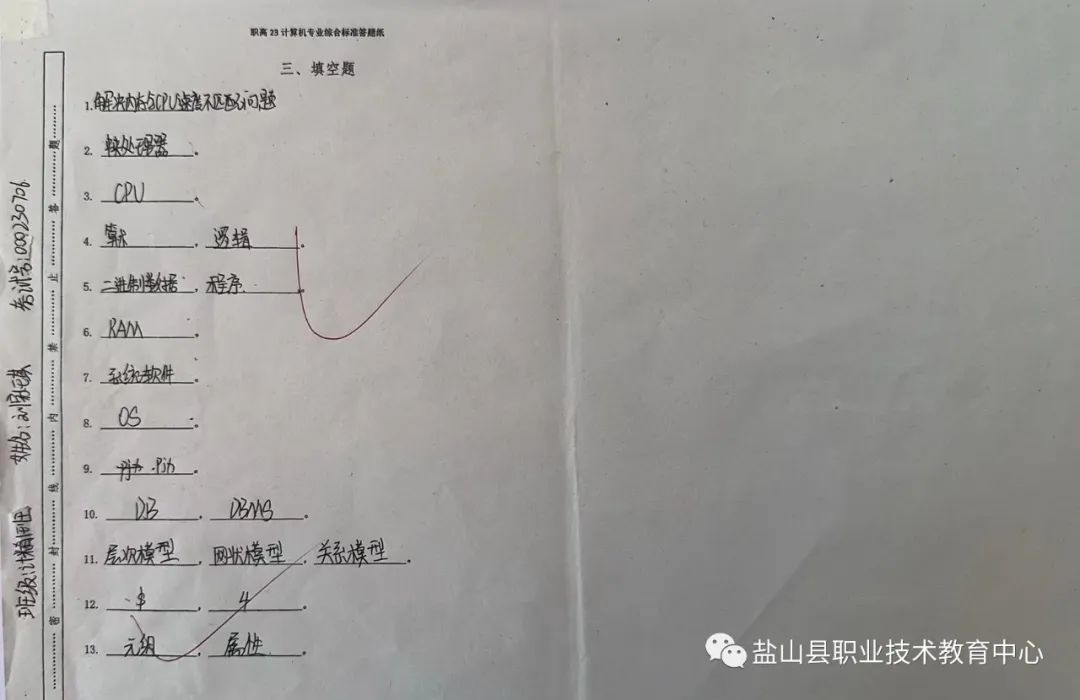 职高23计算机专业综合标准答题纸
三、填空题
1.解决内存与CPU速度不匹配问题
2. 软处理器。
3. CPU。
4. 算术，逻辑。
5. 二进制数据，程序。
6. RAM。
7. 系统软件。
8. OS。
9. Pin。
10. DB，DBMS。
11. 层次模型，网状模型，关系模型。
12. $，4。
13. 元组，属性。
考试号:000230706
姓名:
班级:
密封线内禁止答题
盐山县职业技术教育中心